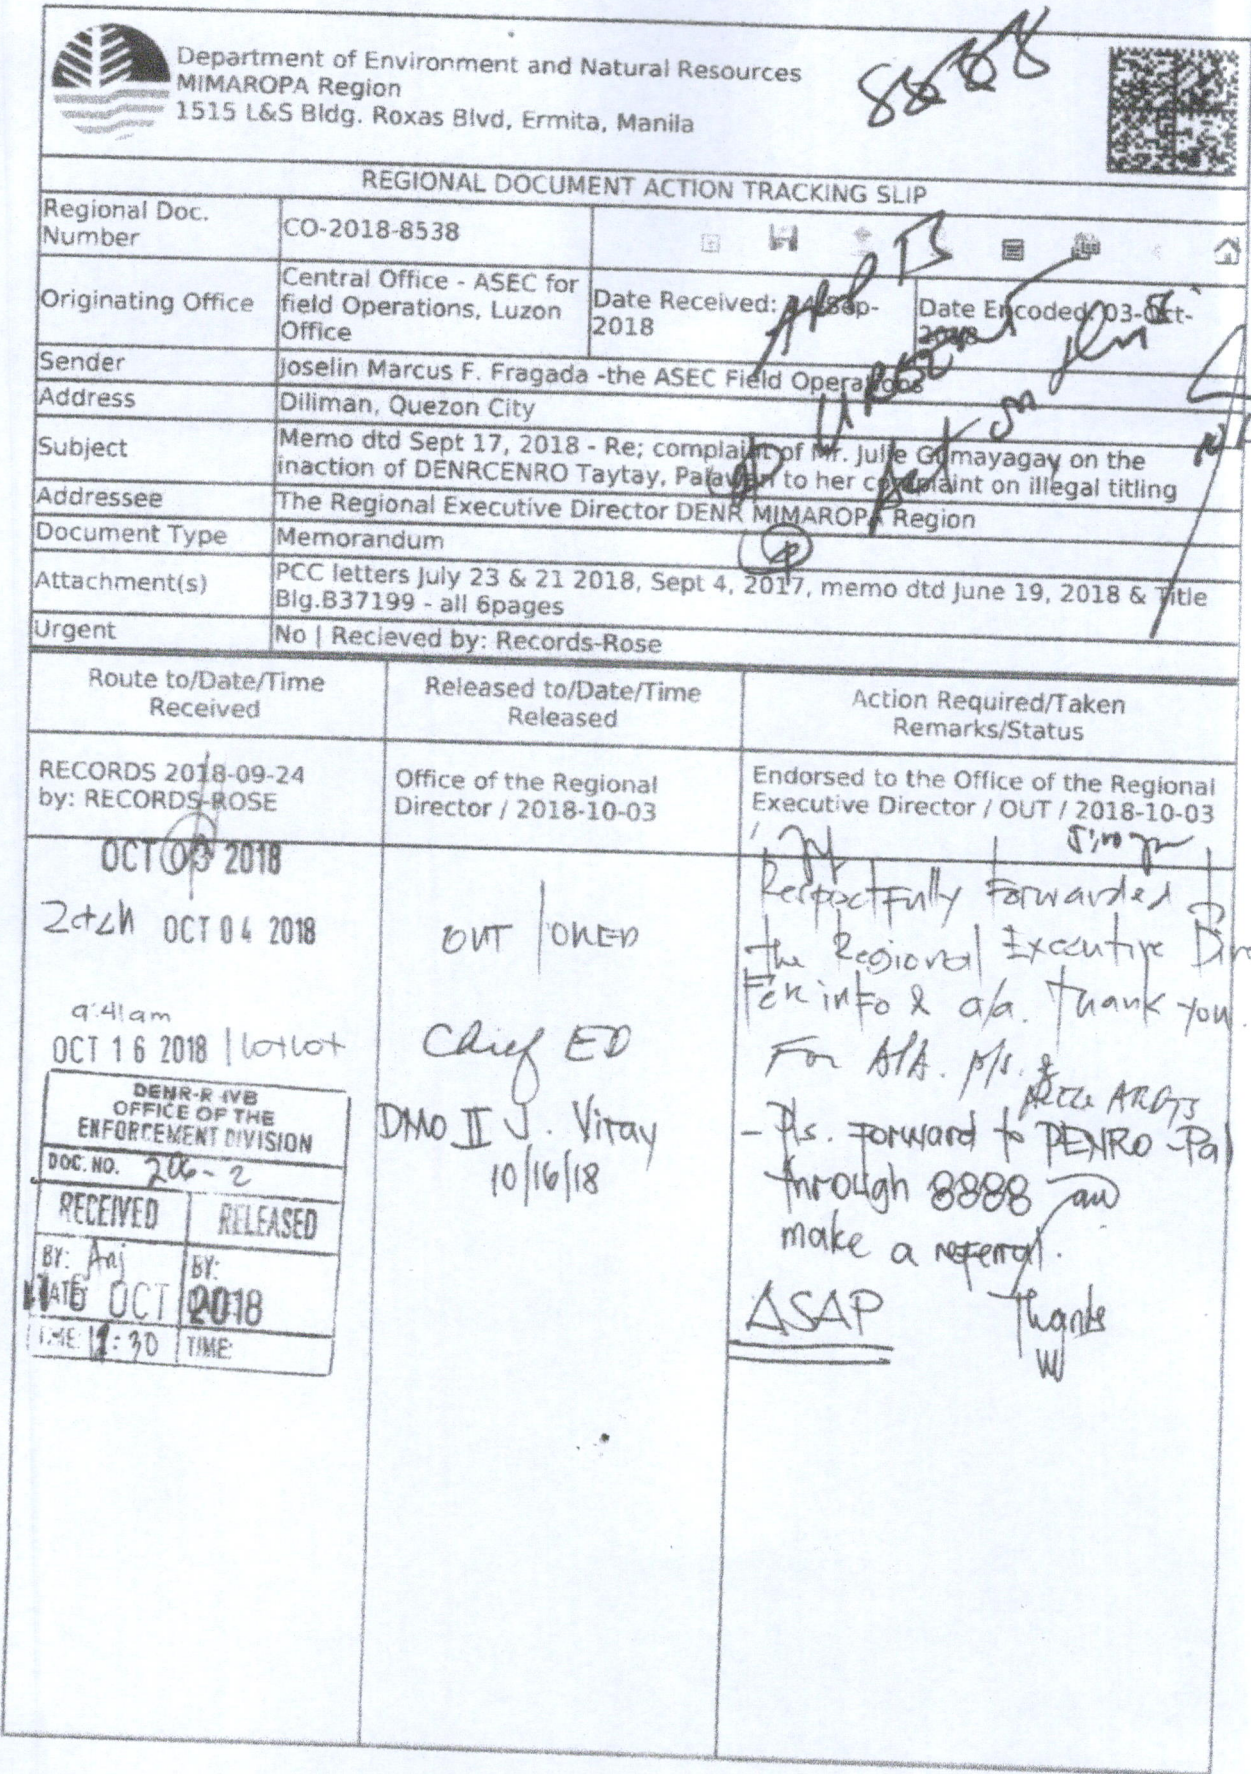 Department of Environment and Natural Resources
MIMAROPA Region
1515 L&S Bldg. Roxas Blvd, Ermita, Manila
REGIONAL DOCUMENT ACTION TRACKING SLIP
Regional Doc. Number
CO-2018-8538
Originating Office
Central Office - ASEC for
field Operations, Luzon
Office
Date Received:
2018
Date Encoded: 03-Oct-
Sender
Joselin Marcus F. Fragada -the ASEC Field Operations
Address
Diliman, Quezon City
Subject
Memo dtd Sept 17, 2018 - Re; complaint of Mr. Julie Gumayagay on the
inaction of DENRCENRO Taytay, Palawan to her complaint on illegal titling
Addressee
The Regional Executive Director DENR MIMAROPA Region
Document Type
Memorandum
Attachment(s)
PCC letters July 23 & 21 2018, Sept 4, 2017, memo dtd June 19, 2018 & Title
Blg.B37199 - all 6pages
Urgent
No | Recieved by: Records-Rose
Route to/Date/Time
Received
Released to/Date/Time
Released
Action Required/Taken
Remarks/Status
RECORDS 2018-09-24
by: RECORDS-ROSE
Office of the Regional
Director / 2018-10-03
Endorsed to the Office of the Regional
Executive Director / OUT / 2018-10-03
OCT 03 2018
OCT 04 2018
OUT / ORED
Respectfully Forwarded to
the Regional Executive Dir
For info & a/a. Thank you.
9:41am
OCT 16 2018 | lotlot
Chief ED
For A/A.
DENR-R IVB
OFFICE OF THE
ENFORCEMENT DIVISION
DOC. NO. 206-2
RECEIVED
RELEASED
BY: Anj
BY:
DATE 16 OCT 2018
TIME: 1:30
TIME:
DMO II J. Viray
10/16/18
- Pls. Forward to PENRO-Pal
through 8888 and
make a referral.
ASAP
Thanks